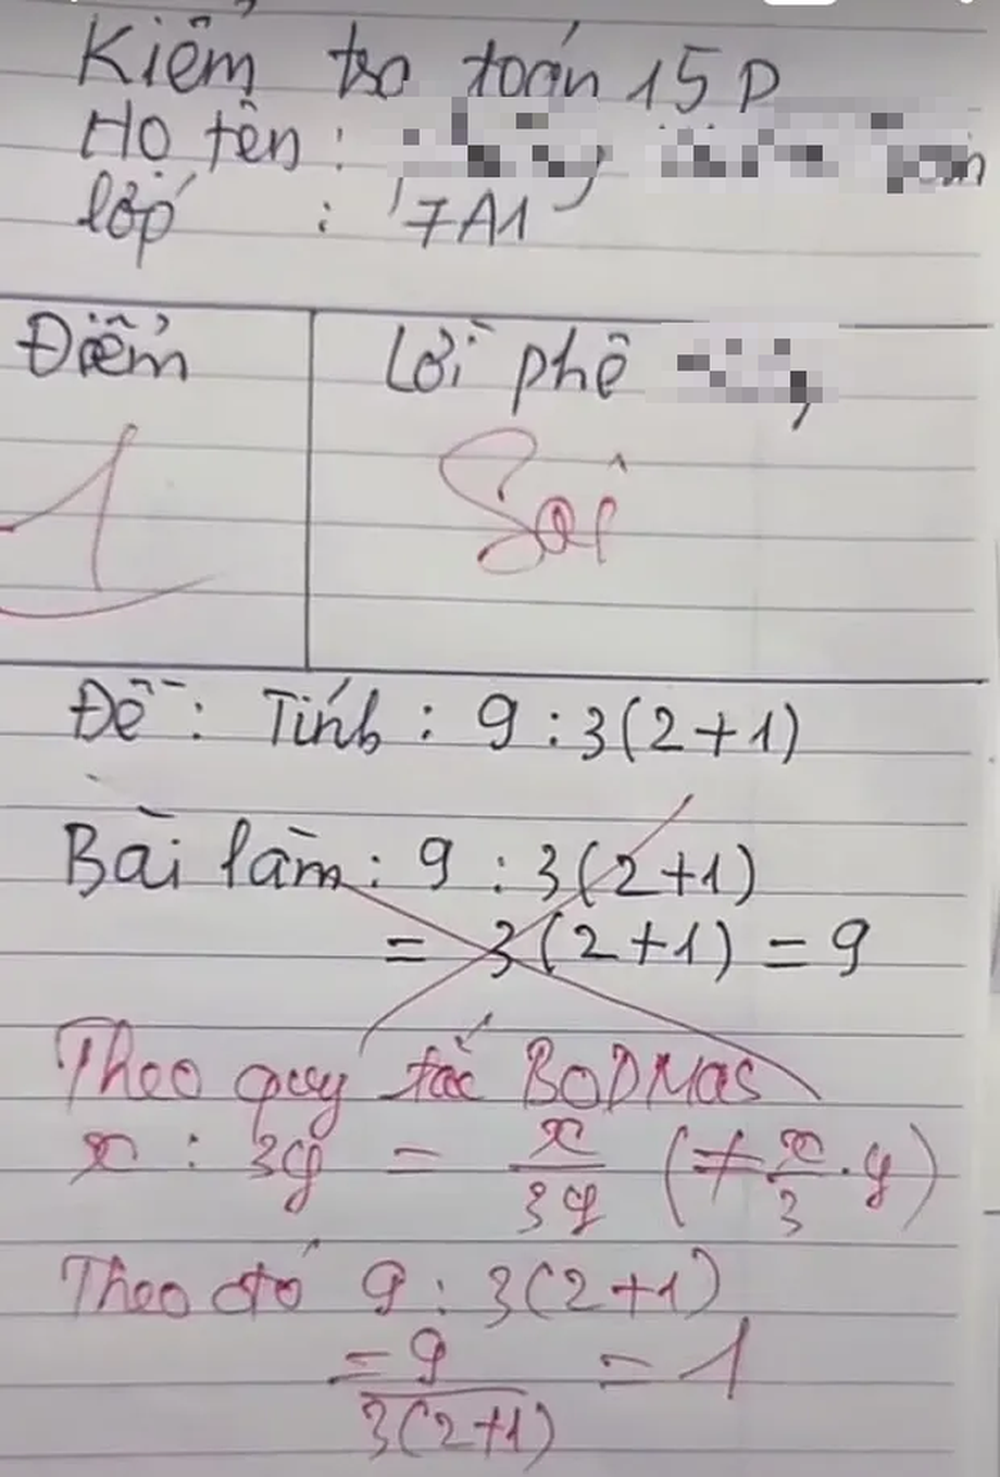 Kiểm tra toán 15 P
Họ tên:
lớp : 7A1
Điểm
Lời phê
1
Sai
Đề: Tính: 9 : 3(2+1)
Bài làm: 9 : 3(2+1)
= 3(2+1) = 9
Theo quy tắc BODMAS
x : 3y = x/3y (≠ x/3 . y)
Theo đó 9 : 3(2+1)
= 9/3(2+1) = 1